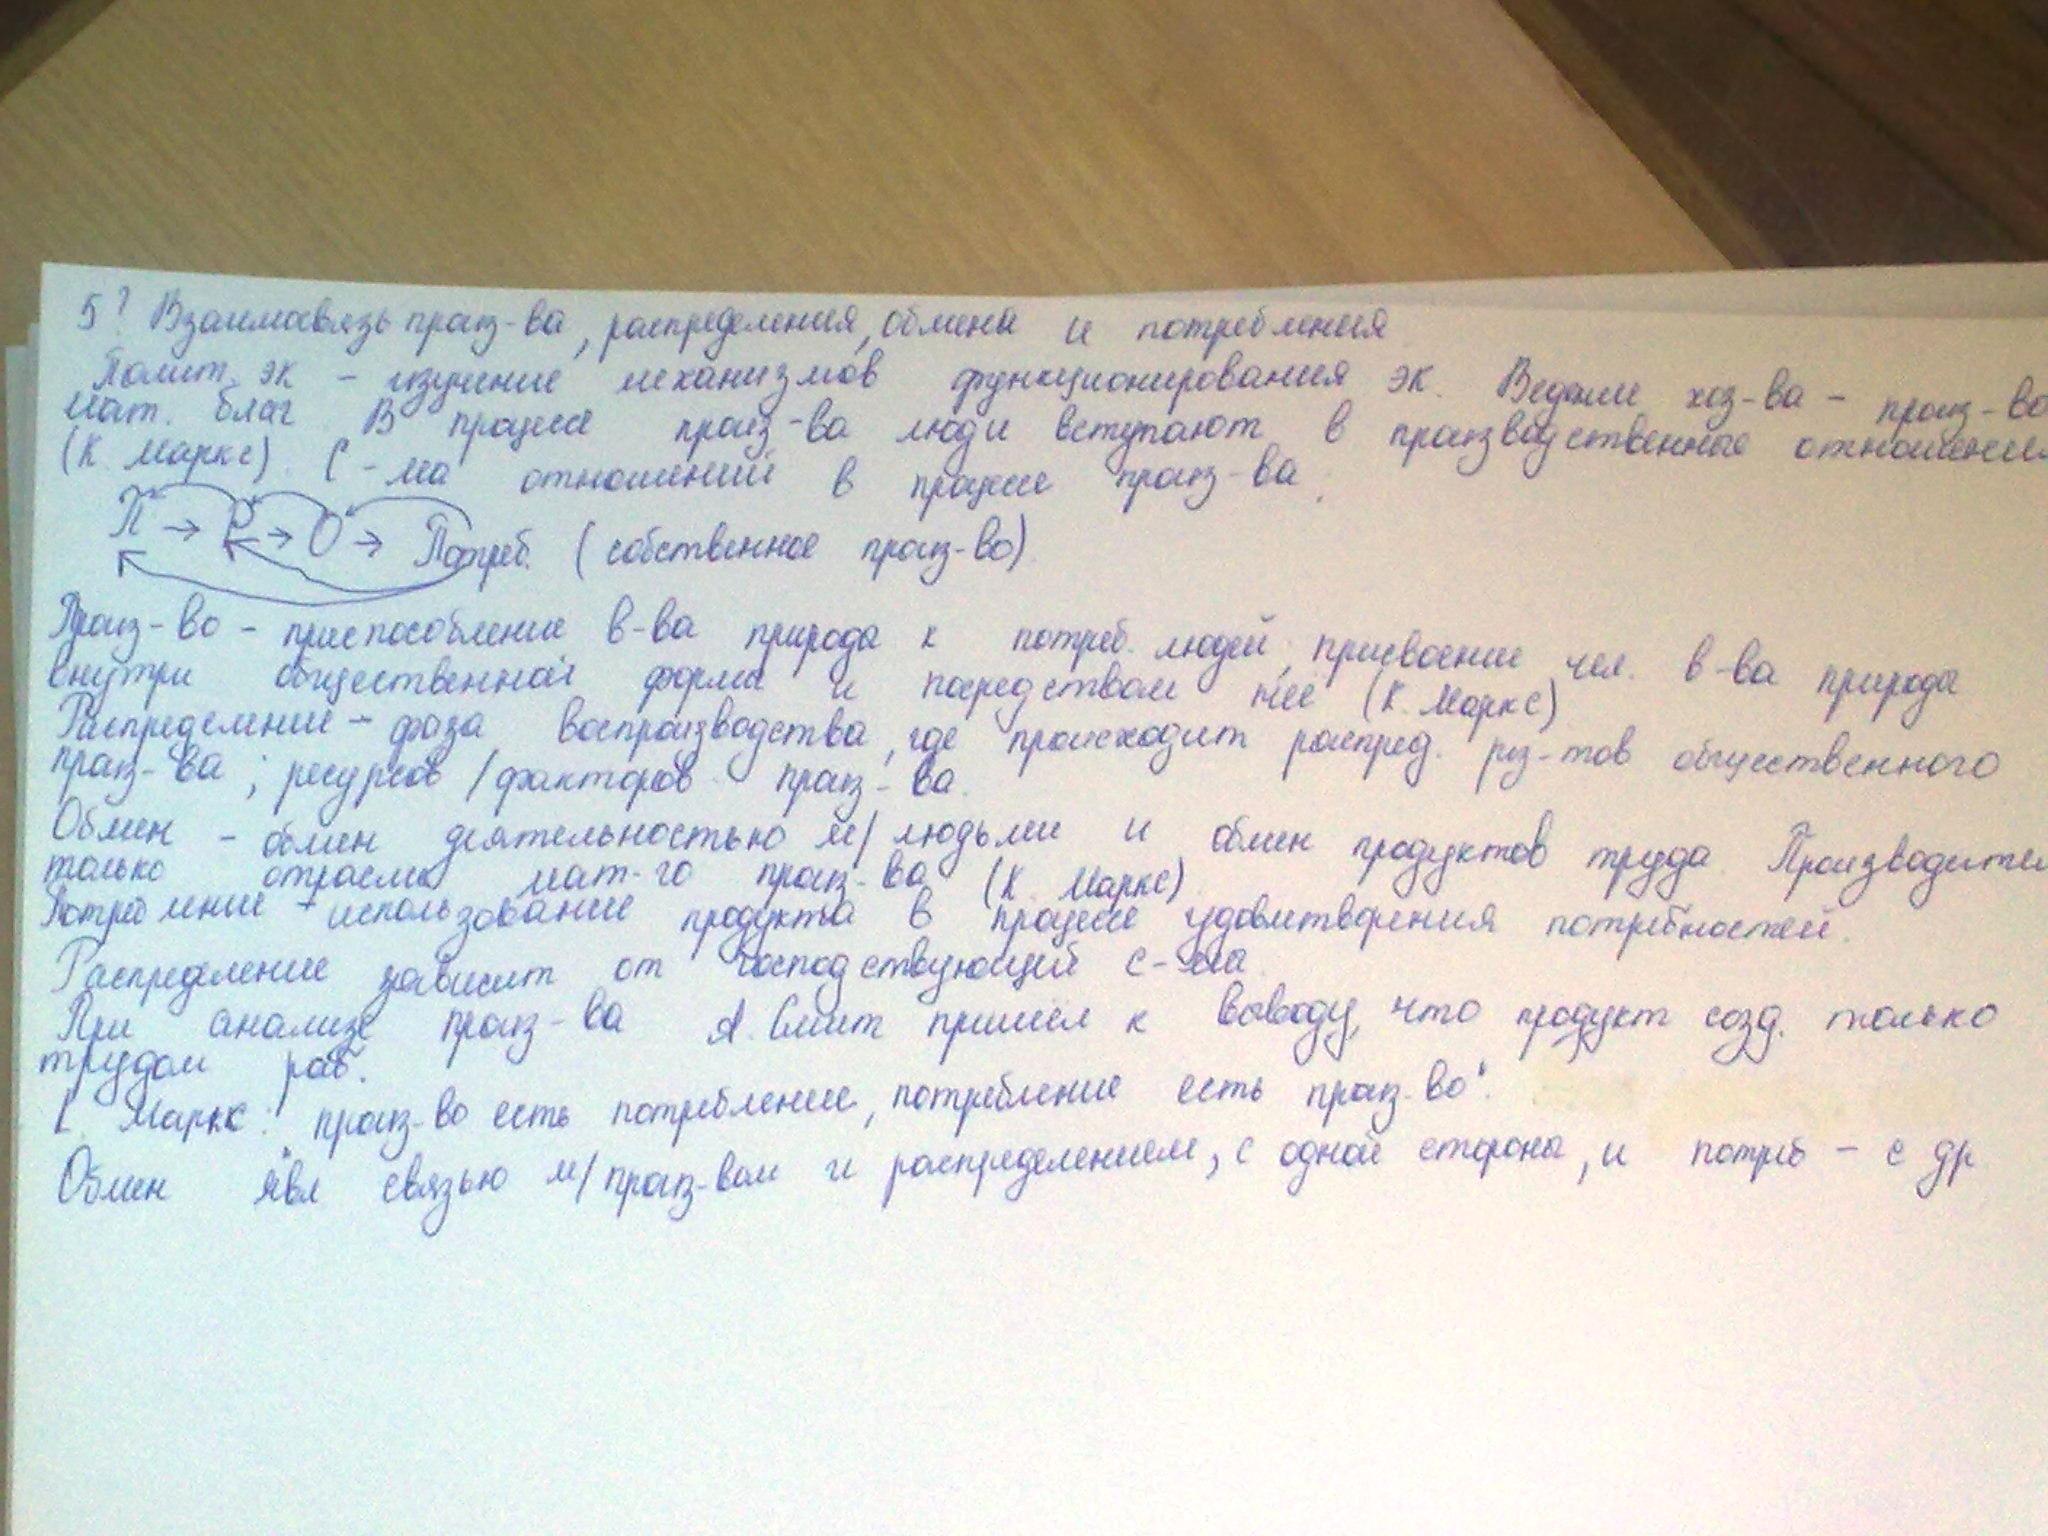 5? Взаимосвязь произ-ва, распределения, обмена и потребления
Полит. эк – изучение механизмов функционирования эк. Ведом хоз-ва – произ-во
мат. благ. В процессе произ-ва люди вступают в производственные отношения
(К. Маркс). С-ма отношений в процессе произ-ва.
П → Р → О → Потреб. (собственное произ-во)
Произ-во – приспособление в-ва природы к потреб. людей, присвоение чел. в-ва природы
внутри общественной формы и посредством неё (К. Маркс)
Распределение – фаза воспроизводства, где происходит распред. рез-тов общественного
произ-ва; ресурсов / факторов произ-ва.
Обмен – обмен деятельностью м/ людьми и обмен продуктов труда. Производител
только отрасли мат-го произ-ва (К. Маркс)
Потребление – использование продукта в процессе удовлетворения потребностей.
Распределение зависит от господствующей с-мы
При анализе произ-ва А. Смит пришёл к выводу, что продукт созд. только
трудом раб.
К. Маркс: "произ-во есть потребление, потребление есть произ-во".
Обмен явл связью м/ произ-вом и распределением, с одной стороны, и потреб – с др